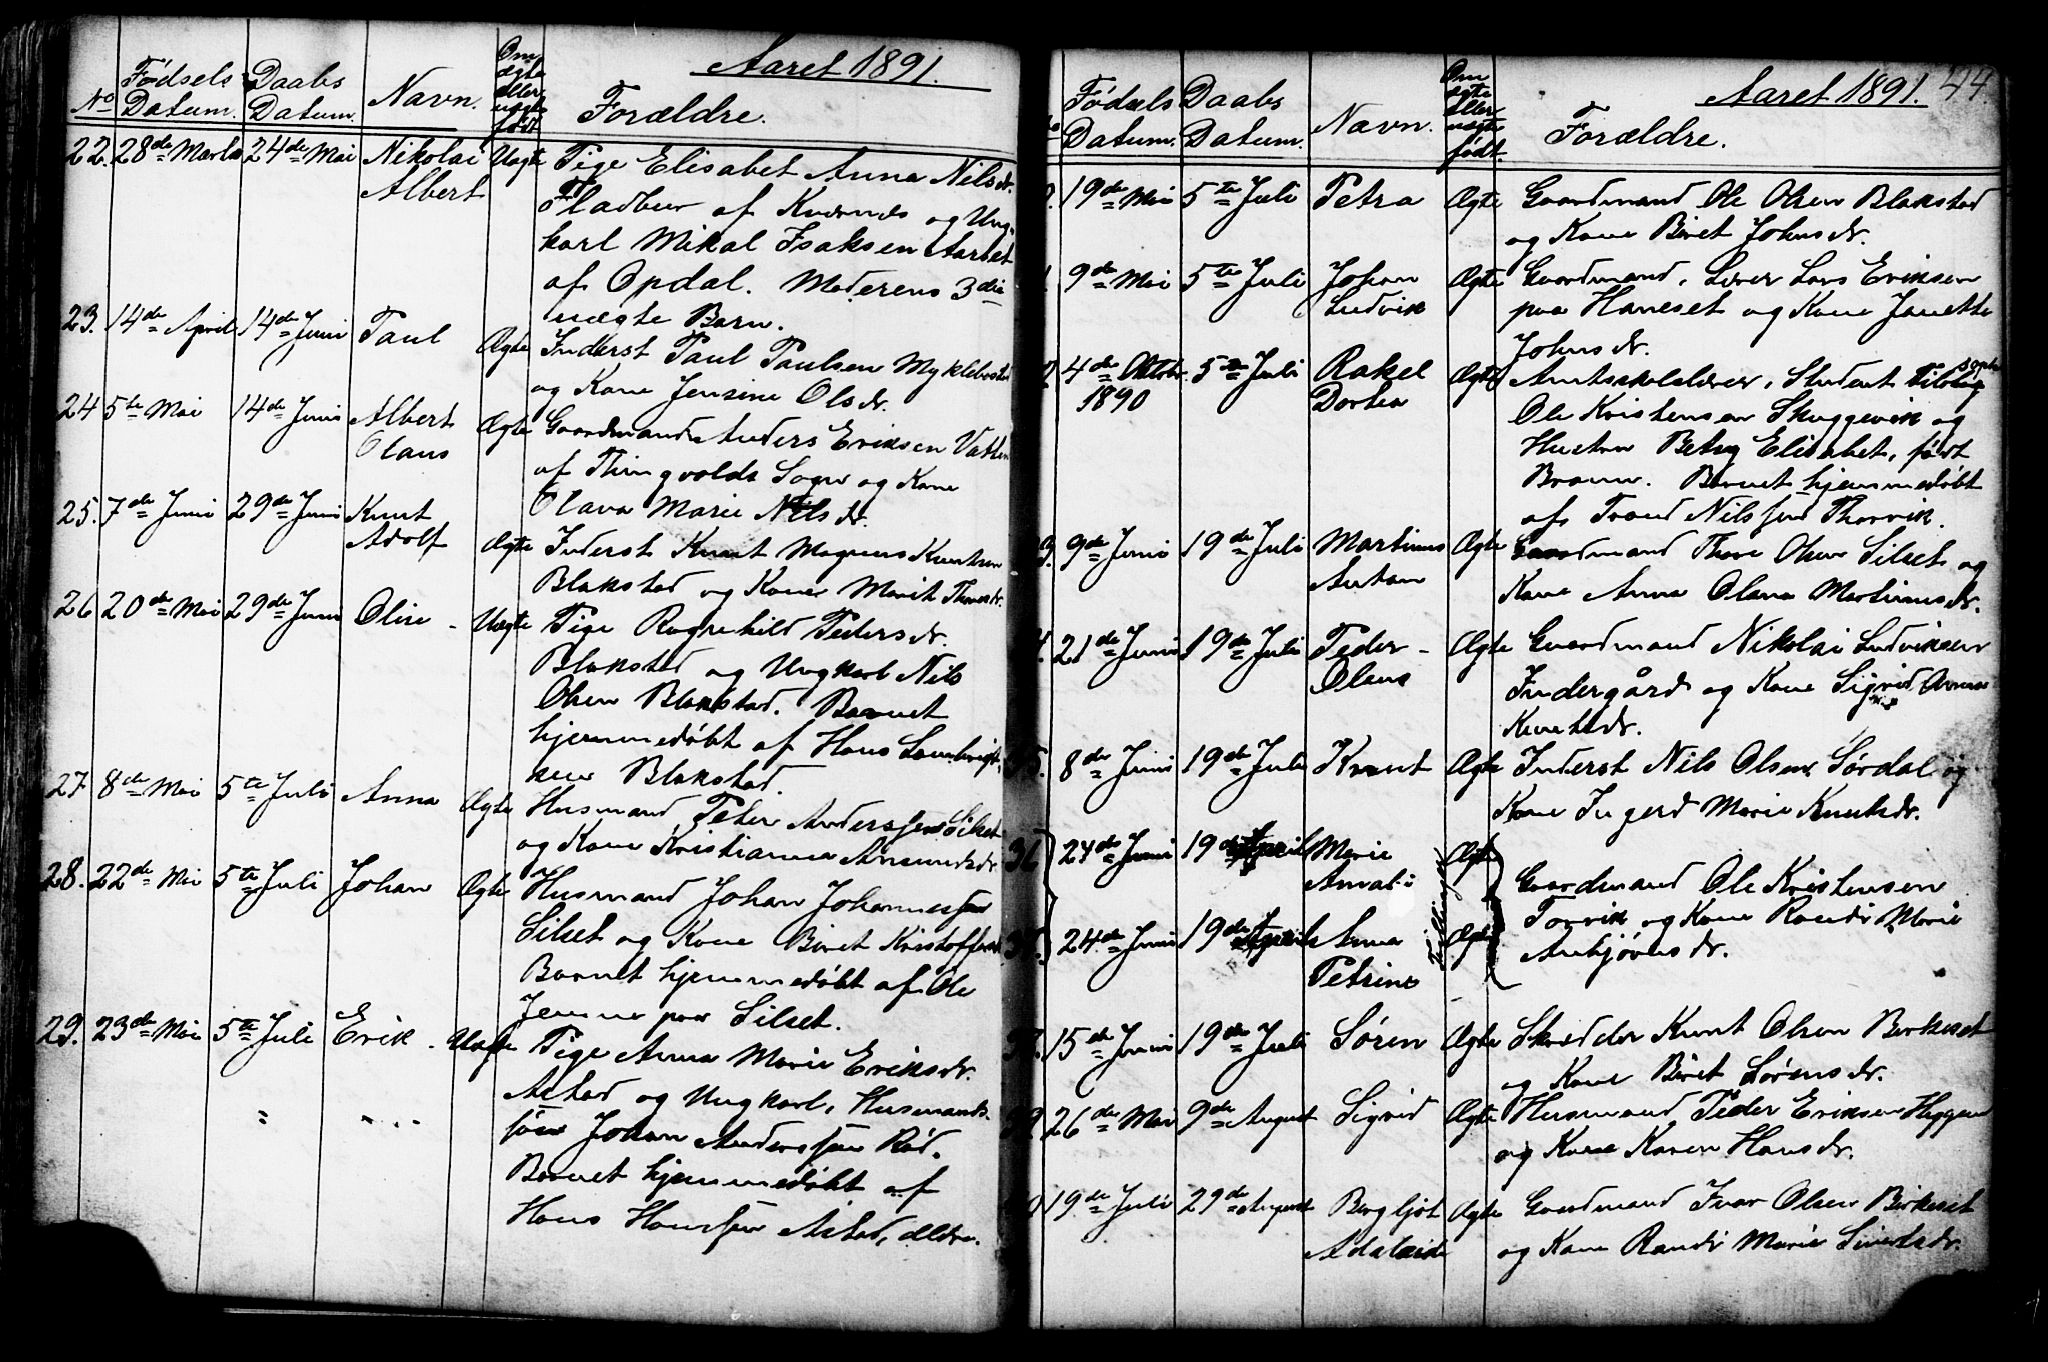 Aaret 1891.
No Fødsels Datum. Daabs Datum. Navn. Om ægte eller uægte født Forældre.
22. 28de Marts 24de Mai Nikolai Uægte Pige Elisabet Anna Nilsdr.
Albert Fladbur af Kvernes og Ung-
karl Mikal Isaksen Aarset
af Opdal. Moderens 3die
uægte Barn.
23. 14de April 14de Juni Paul Ægte Inderst Paul Paulsen Myklebostad
og Kone Jensine Olsdr.
24 5te Mai 14de Juni Albert Ægte Gaardmand Anders Eriksen Vatten
Olaus af Thingvolds Sogn og Kone
Olava Marie Nilsdr.
25. 7de Juni 29de Juni Knut
Adolf Ægte Inderst Knut Magnus Knutsen
Blakstad og Kone Marit Thoresdr.
26 20de Mai 29de Juni Oline - Uægte Pige Ragnehild Pedersdr.
Blakstad og Ungkarl Nils
Olsen Blakstad. Barnet
hjemmedøbt af Hans Lambrigt-
sen Blakstad.
27. 8de Mai 5te Juli Anna Ægte Husmand Peter Anderssen Silset
og Kone Kristianna Amundsdr.
28. 22de Mai 5te Juli Johan Ægte Husmand Johan Johannessen
Silset og Kone Beret Kristoffersdr.
Barnet hjemmedøbt af Ole
Jensen paa Silset.
29. 23de Mai 5te Juli Erik - Uægte Pige Anna Marie Eriksdr.
Astad og Ungkarl, Husmands-
søn Johan Anderssen Rød.
Barnet hjemmedøbt af
Hans Hanssen Astad, ældre.
Aaret 1891. 44.
No Fødsels Datum. Daabs Datum. Navn. Om ægte eller uægte født. Forældre.
19de Mai 5te Juli Petra Ægte Gaardmand Ole Olsen Blakstad
og Kone Beret Johnsdr.
9de Mai 5te Juli Johan Ægte Gaardmand, Lærer Lars Eriksen
Ludvik paa Haneset og Kone Janette
Johnsdr.
4de Oktobr. 5te Juli Rakel Ægte Amtsskolelærer, Student
1890 Dortea Ole Kristensen Skuggevik og
Hustru Betzy Elisabet, født
Braun. Barnet hjemmedøbt
af Trond Nilssen Thorvik.
9de Juni 19de Juli Martinus Ægte Gaardmand Thore Olsen Silset og
Anton Kone Anna Olava Martinusdr.
21de Juni 19de Juli Peder - Ægte Gaardmand Nikolai Ludviksen
Olaus Indergård og Kone Sigrid Anna
Knutsdr.
35. 8de Juni 19de Juli Knut Ægte Inderst Nils Olsen Sørdal og
Kone Ingerd Marie Knutsdr.
36 24de Juni 19de April Marie Ægte
Amalie Gaardmand Ole Kristensen
Torvik og Kone Randi Marie
24de Juni 19de April Anna Tvillinger Ægte Anbjørnsdr.
Petrine
15de Juni 19de Juli Søren Ægte Skrædder Knut Olsen Birkeset
og Kone Beret Sørensdr.
39. 26de Mai 9de August Sigrid Ægte Husmand Peder Eriksen Heggem
og Kone Karen Hansdr.
19de Juli 29de August Bergljot Ægte Gaardmand Ivar Olsen Birkeset
Adelaide og Kone Randi Marie Sivertsdr.